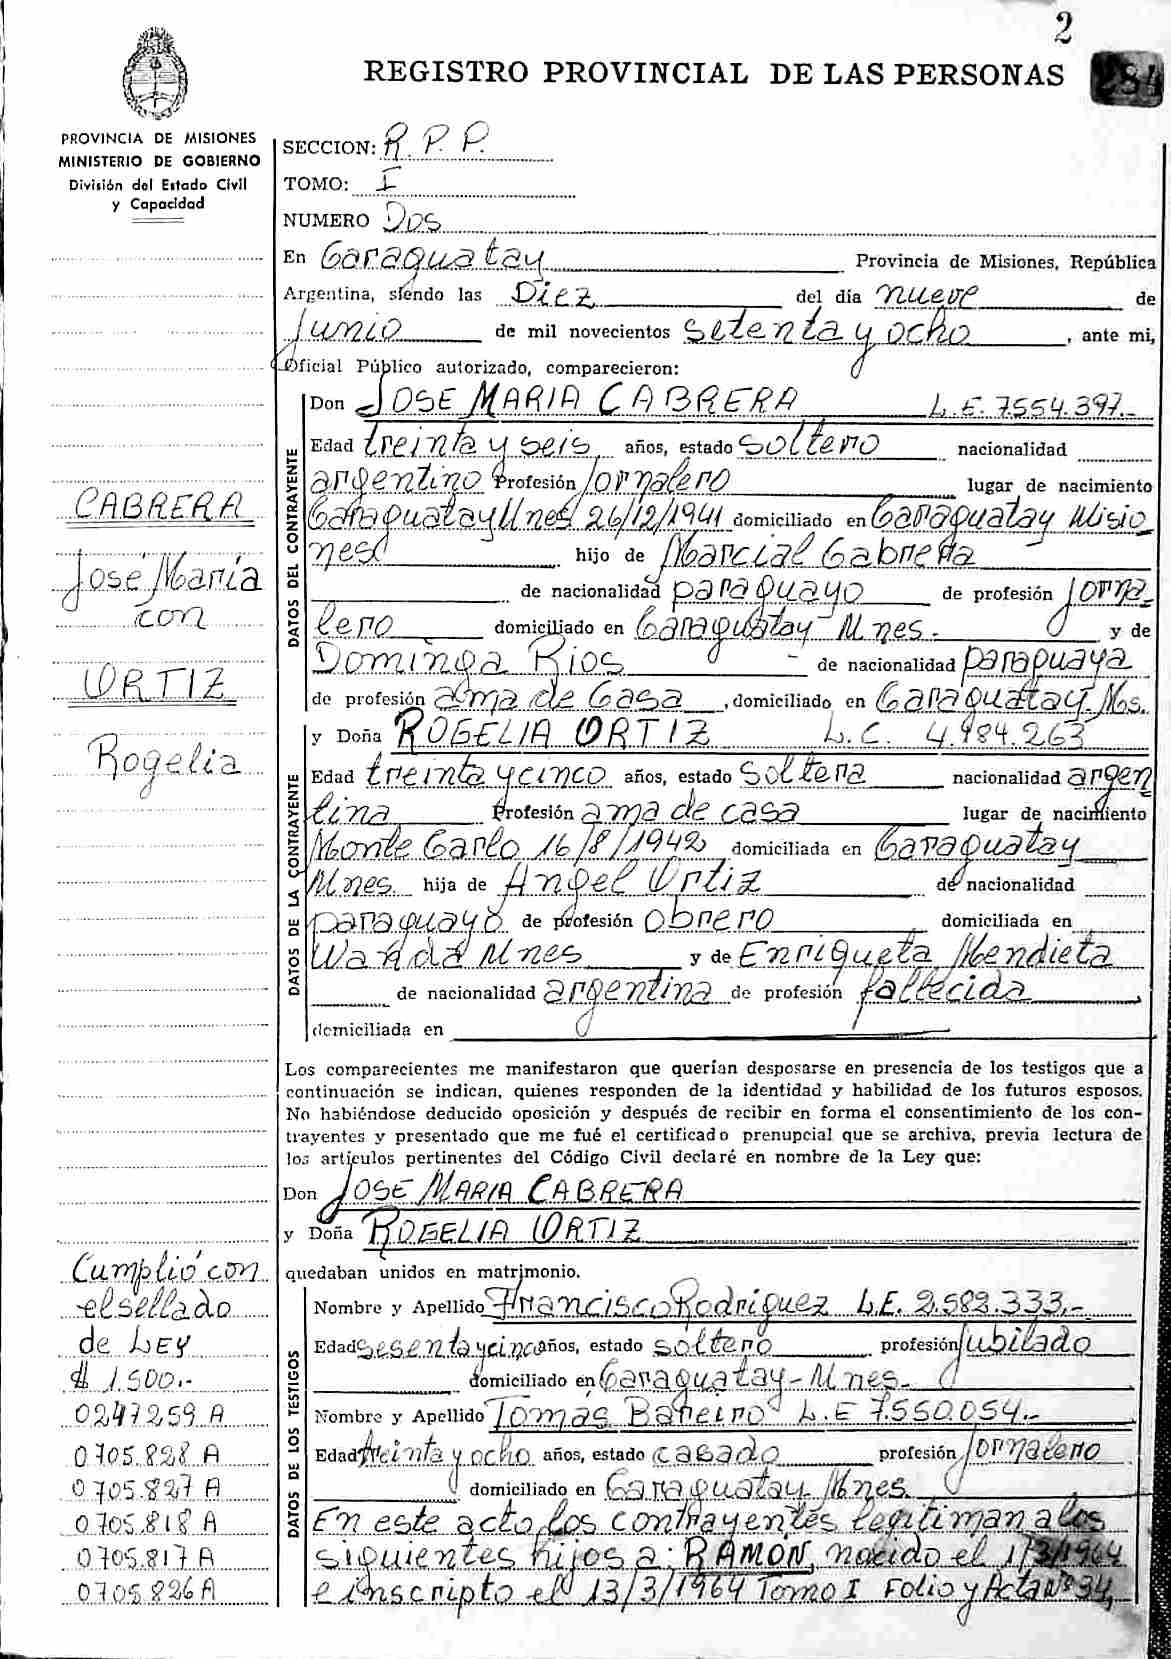 2
REGISTRO PROVINCIAL DE LAS PERSONAS
281
PROVINCIA DE MISIONES
MINISTERIO DE GOBIERNO
División del Estado Civil
y Capacidad
SECCION: R. P. P.
TOMO: I
NUMERO Dos
En Caraguatay Provincia de Misiones, República
Argentina, siendo las Diez del día nueve de
Junio de mil novecientos setenta y ocho, ante mi,
Oficial Público autorizado, comparecieron:
DATOS DEL CONTRAYENTE
Don JOSE MARIA CABRERA L.E. 7554.397.-
Edad treinta y seis años, estado soltero nacionalidad
argentino Profesión Jornalero lugar de nacimiento
Caraguatay Mnes 26/12/1941 domiciliado en Caraguatay Misio
nes hijo de Marcial Cabrera
de nacionalidad paraguayo de profesión Jorna-
lero domiciliado en Caraguatay Mnes. y de
Dominga Rios - de nacionalidad paraguaya
de profesión ama de Casa, domiciliado en Caraguatay-Ms.
DATOS DE LA CONTRAYENTE
y Doña ROGELIA ORTIZ L.C. 4.984.263
Edad treinta y cinco años, estado Soltera nacionalidad argen
tina Profesión ama de casa lugar de nacimiento
Monte Carlo 16/8/1942 domiciliada en Caraguatay
Mnes. hija de Angel Ortiz de nacionalidad
paraguayo de profesión obrero domiciliada en
Wanda Mnes y de Enriqueta Mendieta
de nacionalidad argentina de profesión fallecida
domiciliada en
Los comparecientes me manifestaron que querían desposarse en presencia de los testigos que a
continuación se indican, quienes responden de la identidad y habilidad de los futuros esposos.
No habiéndose deducido oposición y después de recibir en forma el consentimiento de los con-
trayentes y presentado que me fué el certificado prenupcial que se archiva, previa lectura de
los artículos pertinentes del Código Civil declaré en nombre de la Ley que:
Don JOSE MARIA CABRERA
y Doña ROGELIA ORTIZ
quedaban unidos en matrimonio.
DATOS DE LOS TESTIGOS
Nombre y Apellido Francisco Rodriguez L.E. 2.582.333.-
Edad sesenta y cinco años, estado soltero profesión Jubilado
domiciliado en Caraguatay-Mnes.
Nombre y Apellido Tomás Bareiro L.E 7.550.054.-
Edad treinta y ocho años, estado casado profesión Jornalero
domiciliado en Caraguatay Mnes.
En este acto los contrayentes legitiman a los
siguientes hijos a: RAMON, nacido el 1/3/1964
e inscripto el 13/3/1964 Tomo I Folio y Acta Nº 34,
CABRERA
José María
con
ORTIZ
Rogelia
Cumplió con
el sellado
de LEY
$ 1.500.-
0247259 A
0705.828 A
0705.827 A
0705.818 A
0705.817 A
0705.826 A